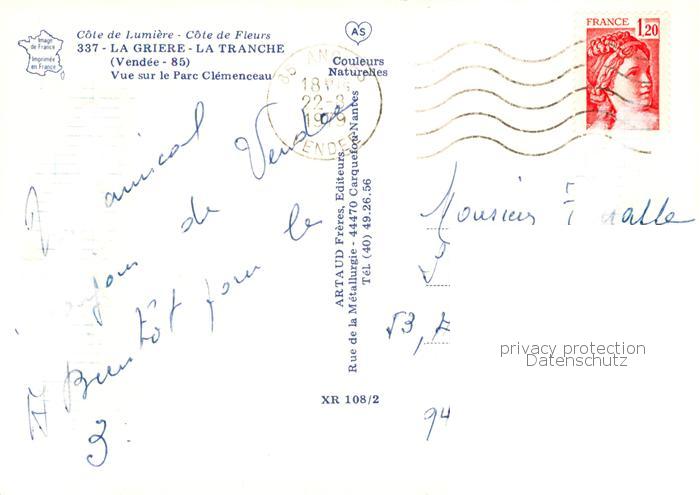 Image
de France
Imprimée
en France
Côte de Lumière - Côte de Fleurs
337 - LA GRIERE - LA TRANCHE
(Vendée - 85)
Vue sur le Parc Clémenceau
AS
Couleurs
Naturelles
FRANCE 1,20
85 ANG
18
22-
1979
VENDEE
amical
de Vendée
Bientôt pour le
3.
ARTAUD Frères, Editeurs
Rue de la Métallurgie - 44470 Carquefou-Nantes
Tél. (40) 49.26.56
XR 108/2
Monsieur
53,
94
privacy protection
Datenschutz